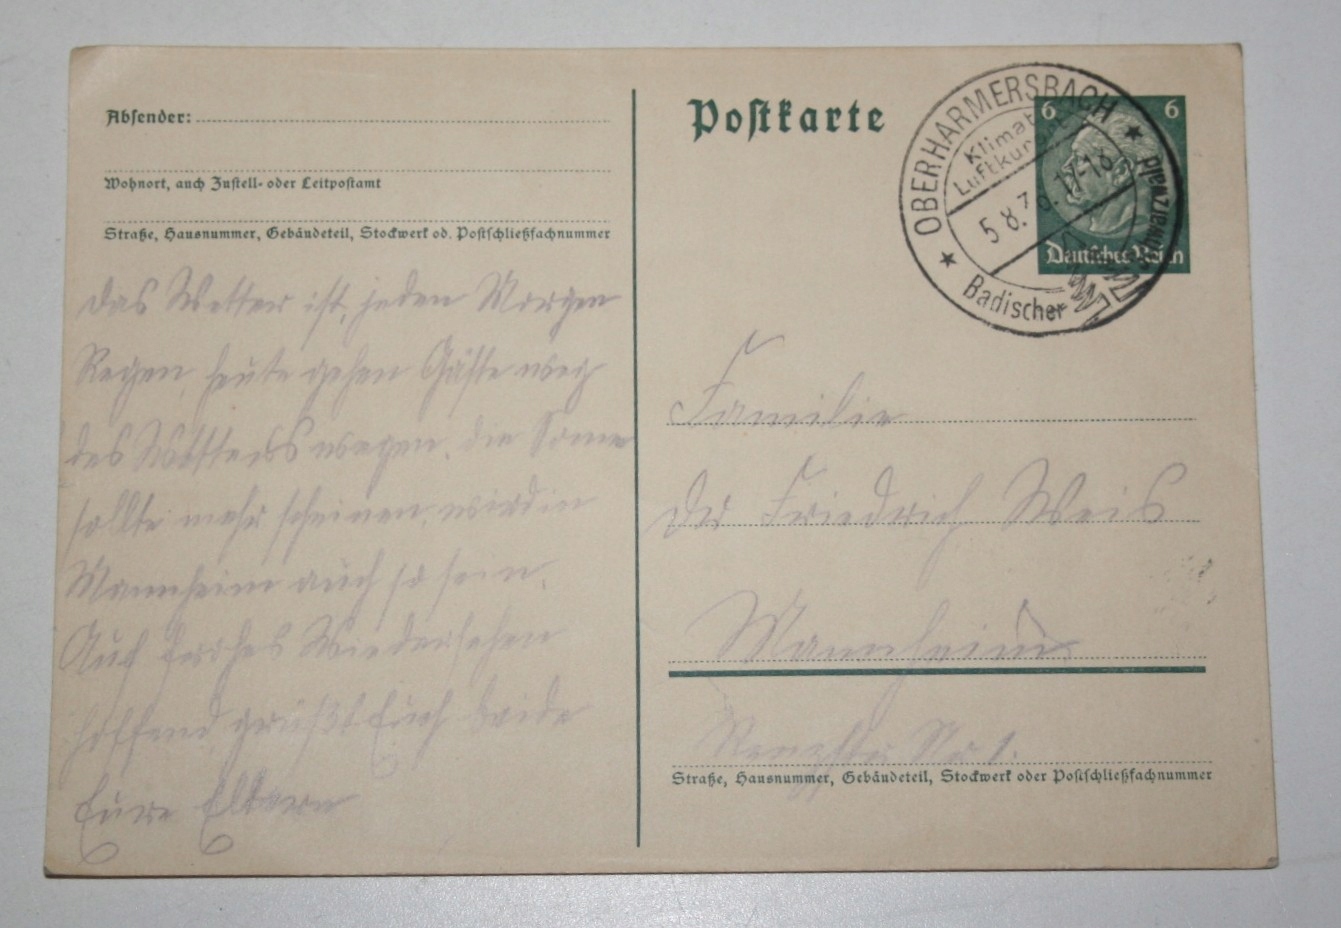 Absender:
Wohnort, auch Zustell- oder Leitpostamt
Straße, Hausnummer, Gebäudeteil, Stockwerk od. Postschließfachnummer
das Wetter ist, jeden Morgen
Regen, heute gehen Gäste weg
des Wetters wegen. die Sonne
sollte mehr scheinen, wird in
Mannheim auch so sein.
Auf frohes Wiedersehen
hoffend grüßt Euch beide
Eure Eltern
Postkarte
6 6
Deutsches Reich
OBERHARMERSBACH
Klimat.
Luftkurort
5.8. 17-18
Badischer Schwarzwald
Familie
Friedrich Weis
Mannheim
No 1.
Straße, Hausnummer, Gebäudeteil, Stockwerk oder Postschließfachnummer